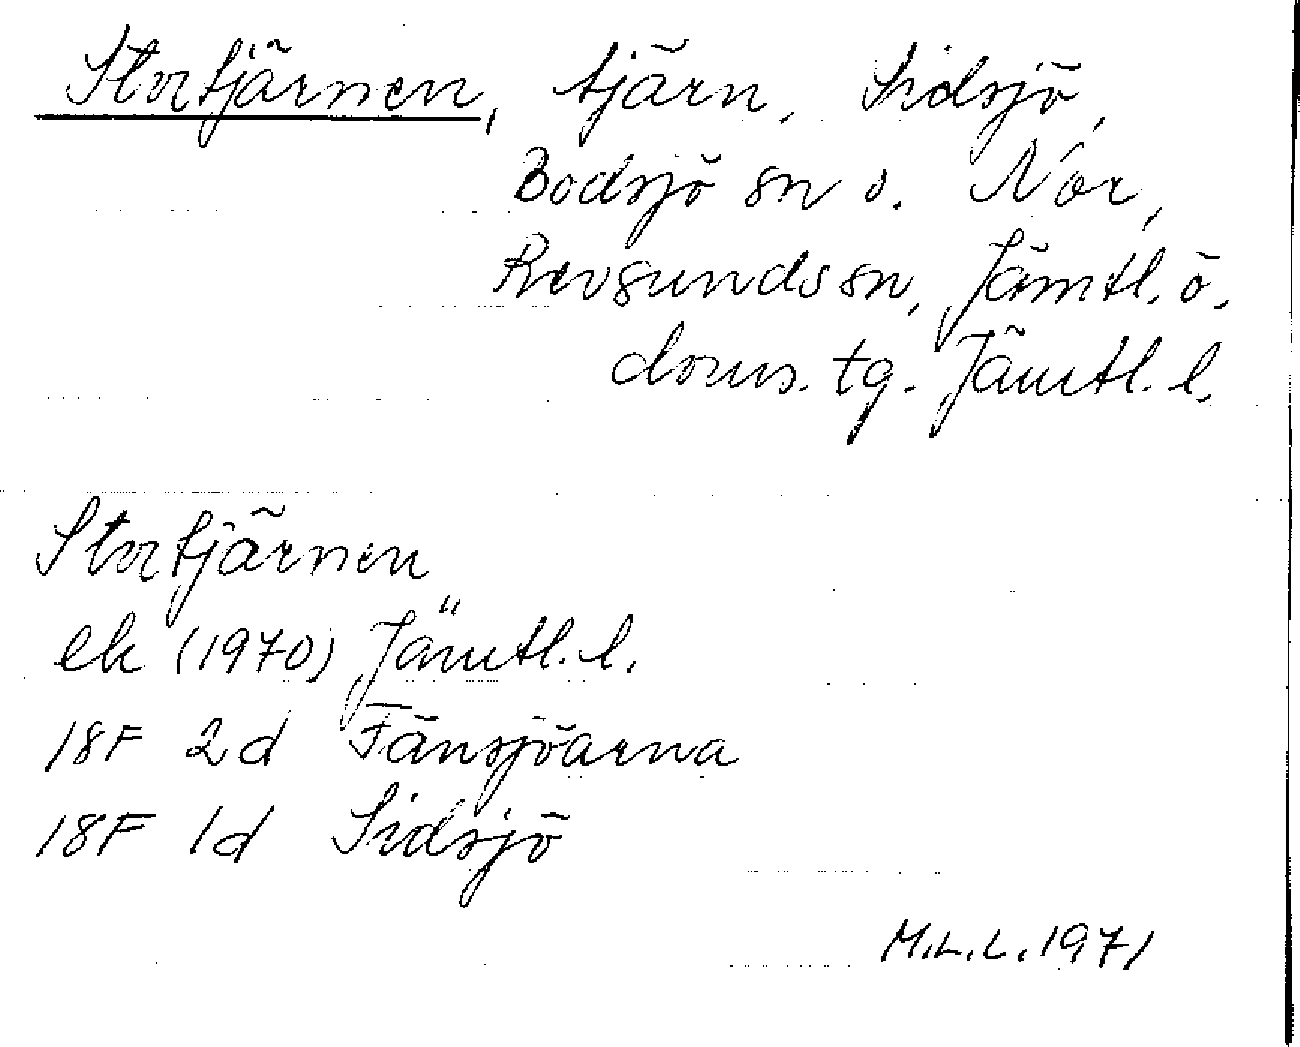 Stortjärnen, tjärn, Sidsjö,
Bodsjö sn o. Nor,
Revsunds sn, Jämtl. ö.
doms. tg. Jämtl. l.
Stortjärnen
ek (1970) Jämtl. l.
18F 2d Fänsjöarna
18F 1d Sidsjö
M.L.L. 1971